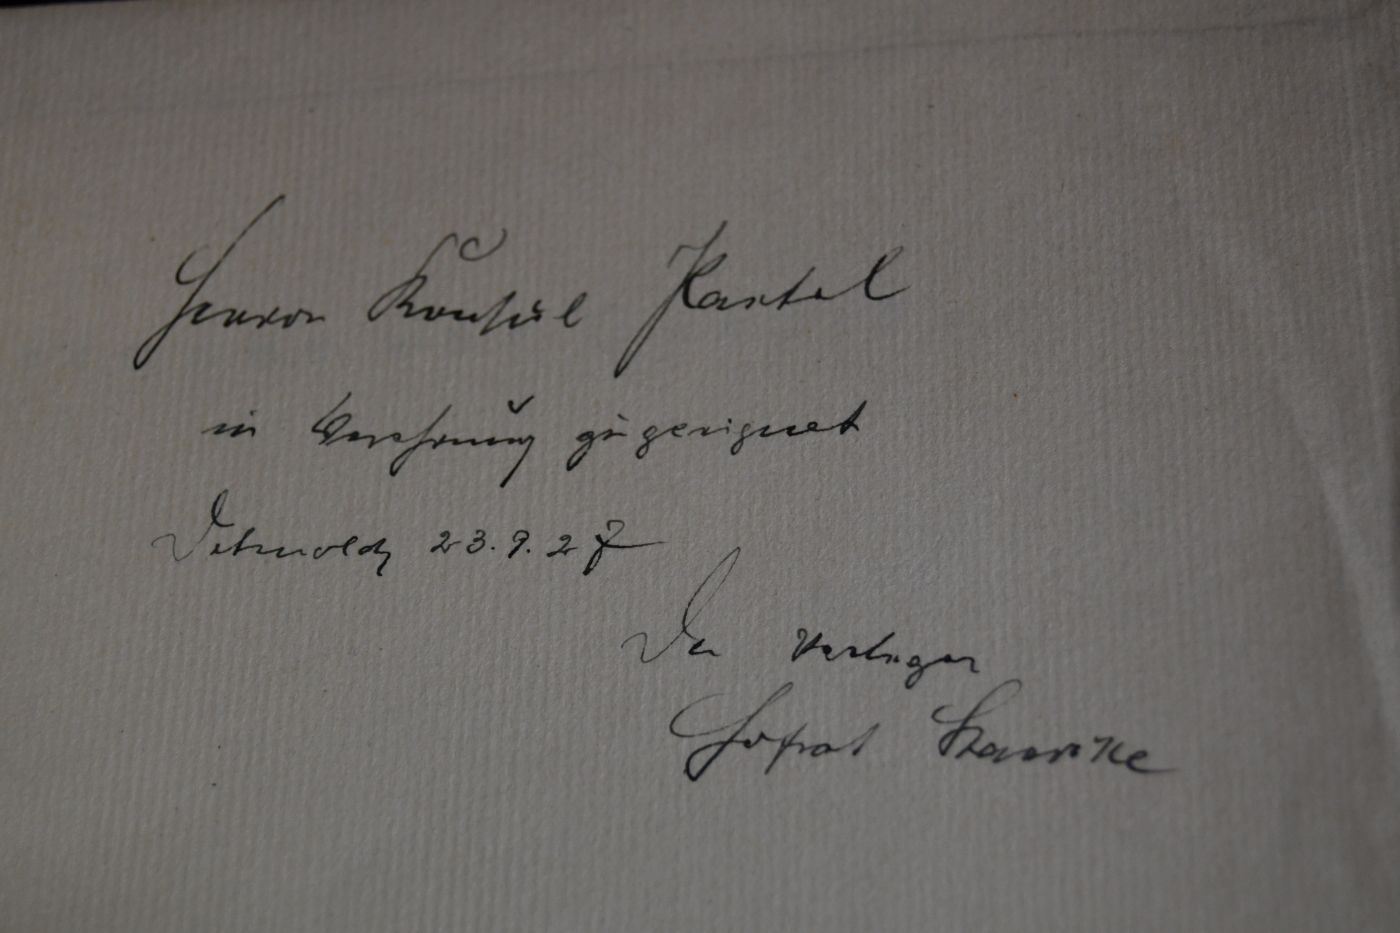 Herrn Konsul Kastel
in Verehrung zugeeignet
Detmold, 23.9.27
Der Verleger
Hofrat Staercke